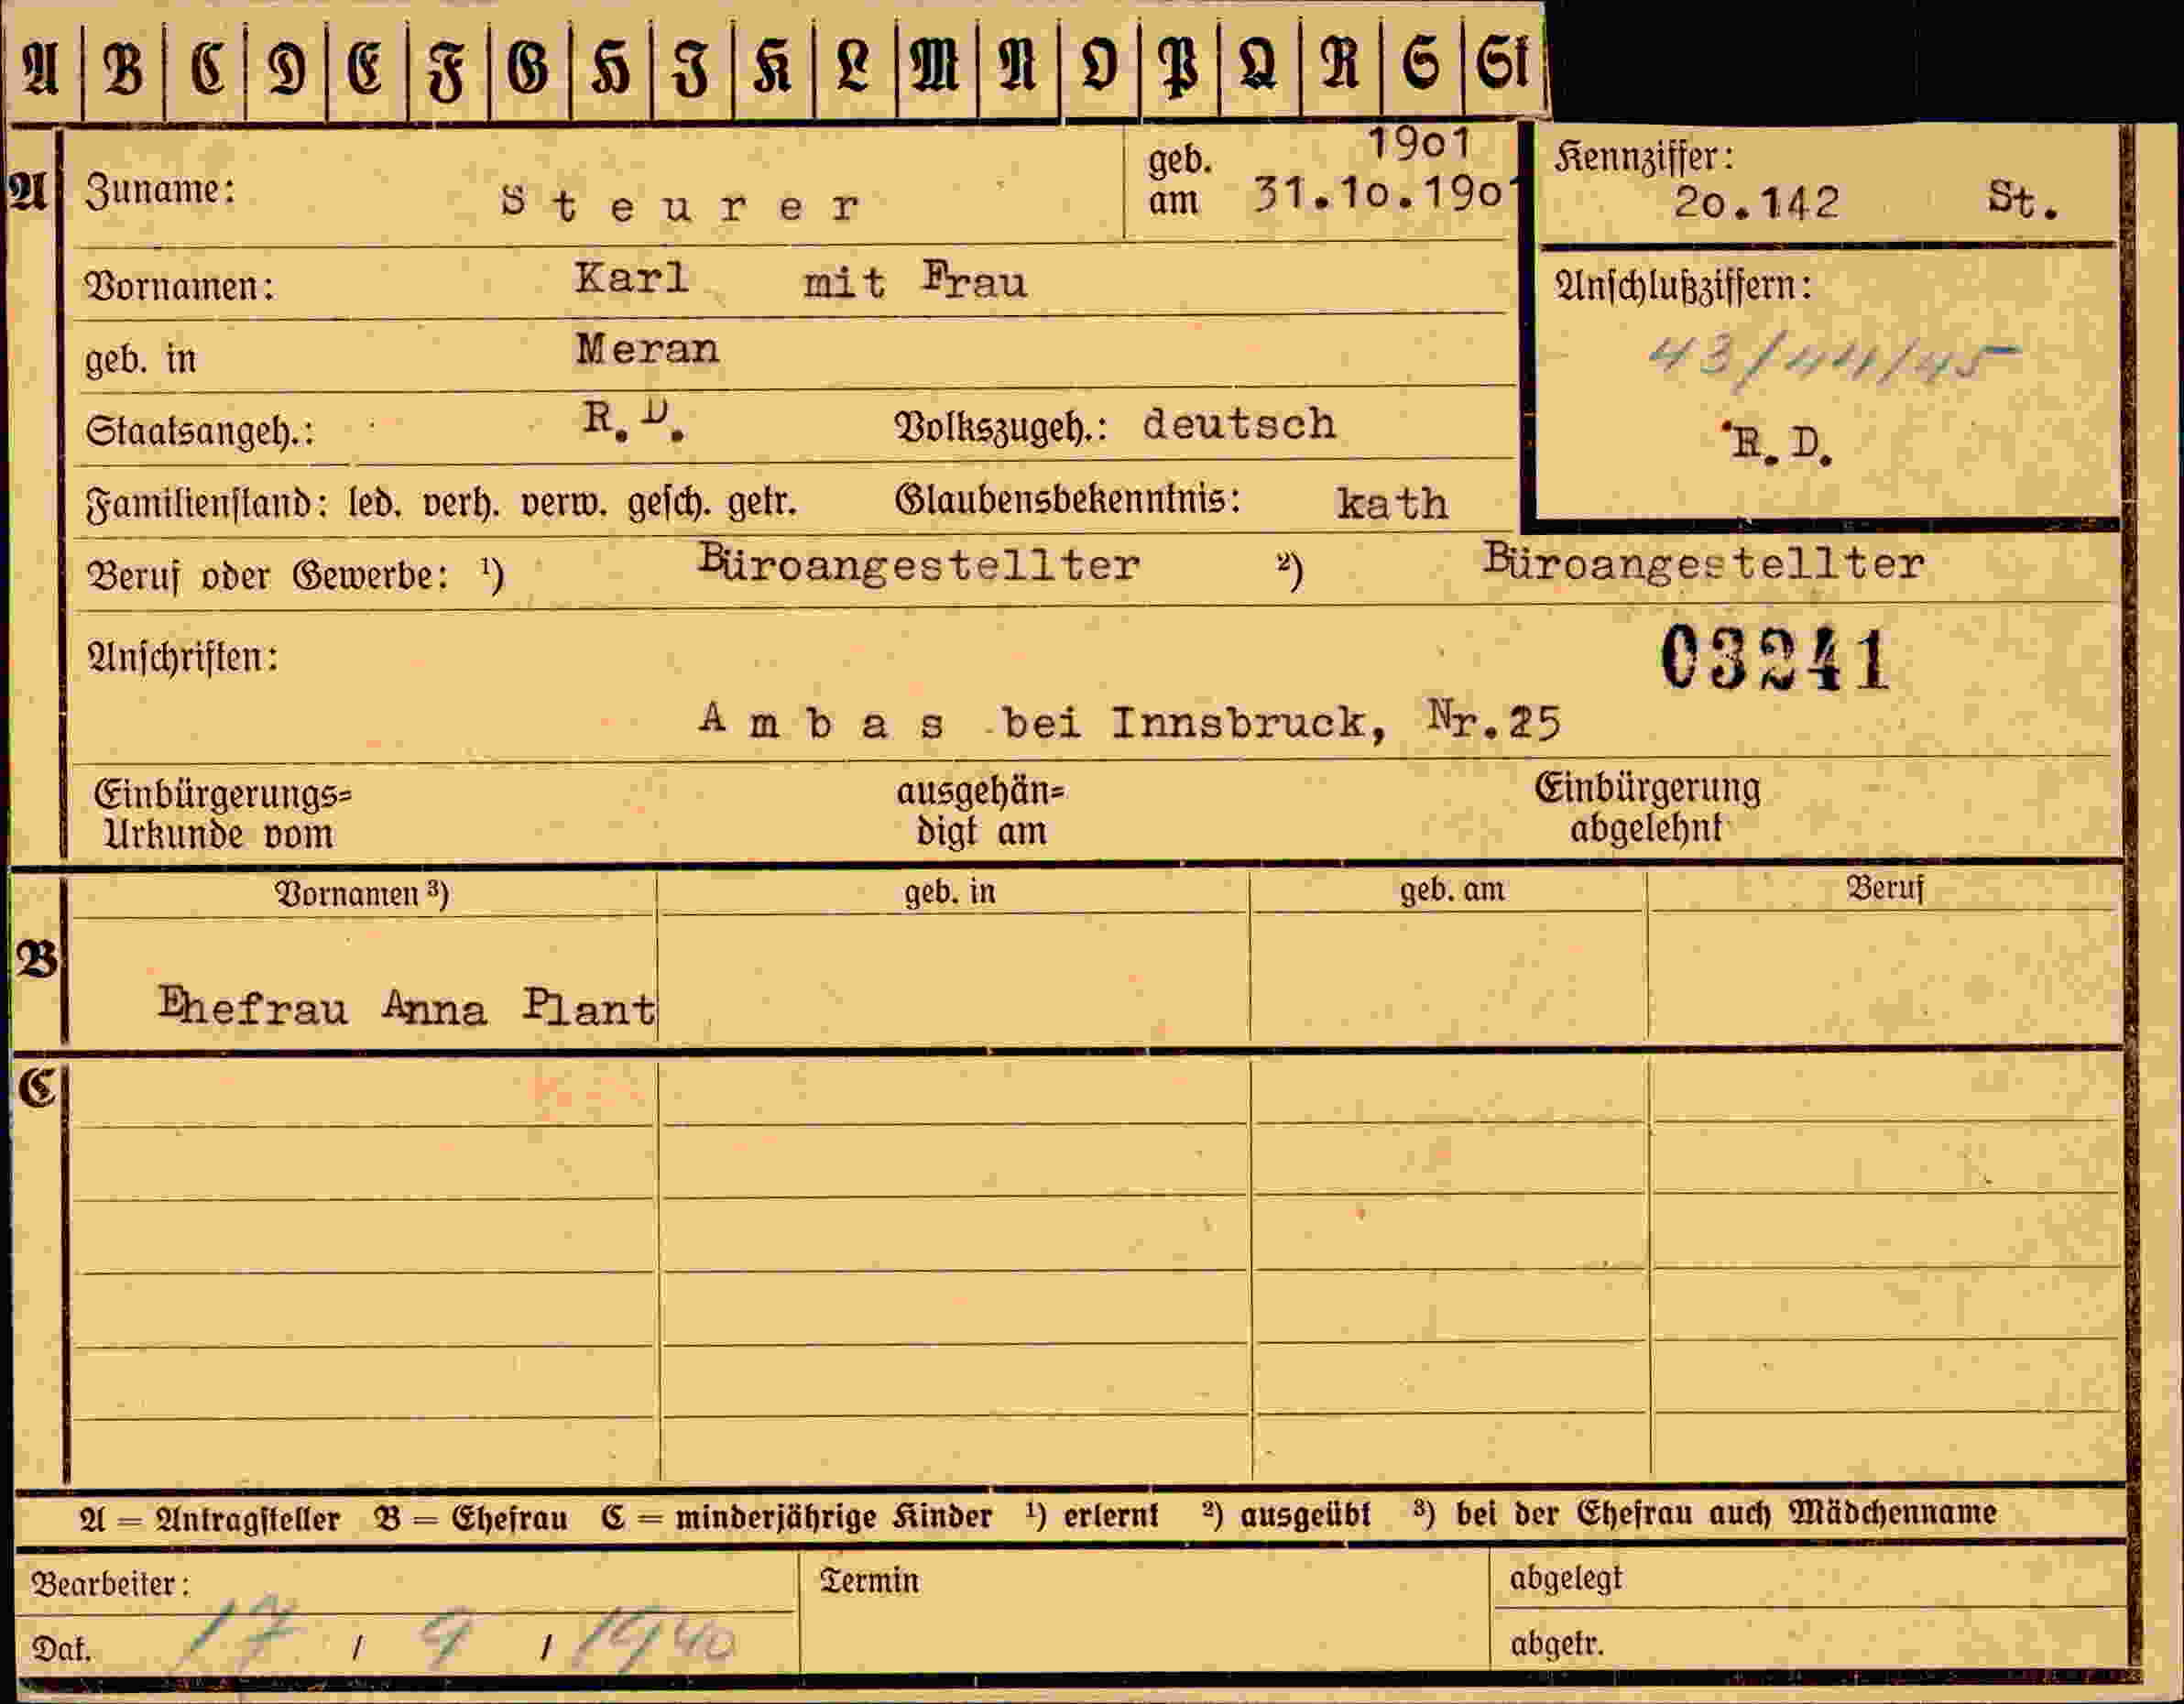 A B C D E F G H J K L M N O P Q R S St
A
Zuname: Steurer
geb. am 1901
31.10.1901
Kennziffer:
20.142 St.
Vornamen: Karl mit Frau
Anschlußziffern:
43/44/45
R.D.
geb. in Meran
Staatsangeh.: R.D. Volkszugeh.: deutsch
Familienstand: led. verh. verw. gesch. getr. Glaubensbekenntnis: kath
Beruf oder Gewerbe: ¹) Büroangestellter ²) Büroangestellter
Anschriften:
03241
Ambas bei Innsbruck, Nr.25
Einbürgerungs=
Urkunde vom
ausgehän=
digt am
Einbürgerung
abgelehnt
B
Vornamen ³) geb. in geb. am Beruf
Ehefrau Anna Plant
C
A = Antragsteller B = Ehefrau C = minderjährige Kinder ¹) erlernt ²) ausgeübt ³) bei der Ehefrau auch Mädchenname
Bearbeiter:
Termin
abgelegt
Dat. 17 / 9 / 1940
abgetr.